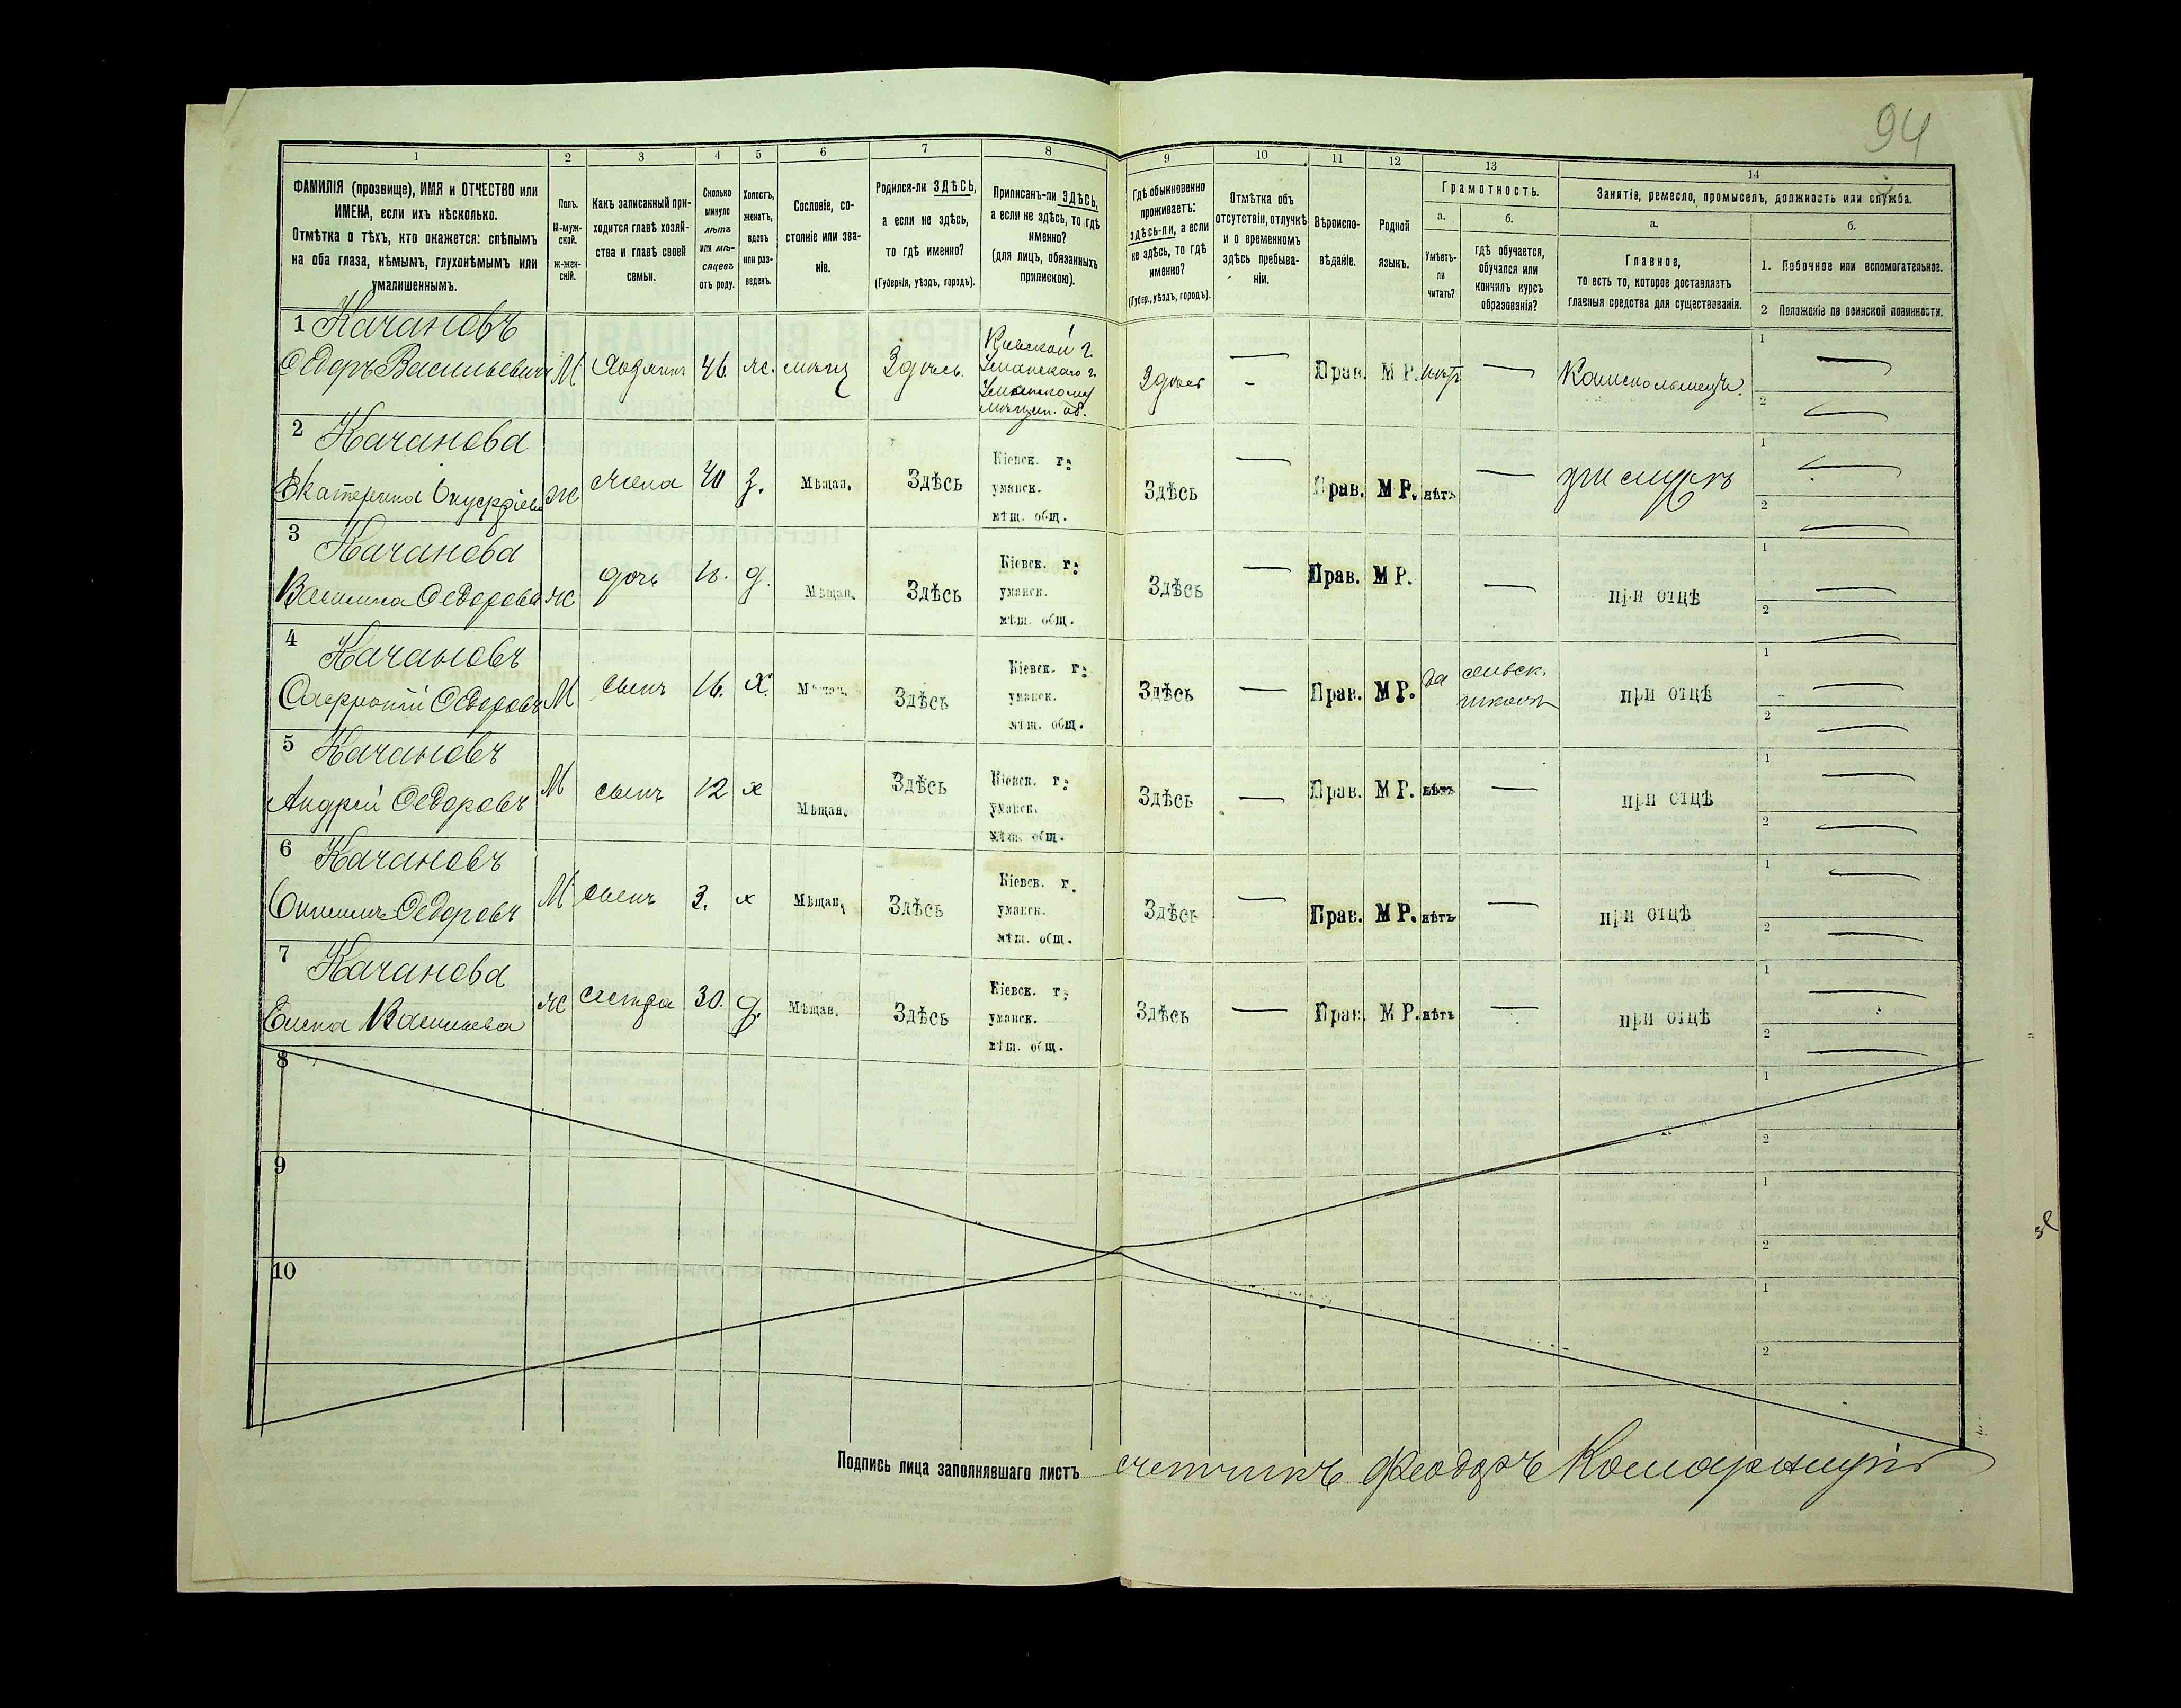 94
1
2
3
4
5
6
7
8
9
10
11
12
13
14
ФАМИЛІЯ (прозвище), ИМЯ и ОТЧЕСТВО или
ИМЕНА, если ихъ нѣсколько.
Отмѣтка о тѣхъ, кто окажется: слѣпымъ
на оба глаза, нѣмымъ, глухонѣмымъ или
умалишеннымъ.
Полъ.
М-муж-
ской.
ж-жен-
скій.
Какъ записанный при-
ходится главѣ хозяй-
ства и главѣ своей
семьи.
Сколько
минуло
лѣтъ
или мѣ-
сяцевъ
отъ роду.
Холостъ,
женатъ,
вдовъ
или раз-
веденъ.
Сословіе, со-
стояніе или зва-
ніе.
Родился-ли ЗДѢСЬ,
а если не здѣсь,
то гдѣ именно?
(Губернія, уѣздъ, городъ).
Приписанъ-ли ЗДѢСЬ,
а если не здѣсь, то гдѣ
именно?
(для лицъ, обязанныхъ
припискою).
Гдѣ обыкновенно
проживаетъ:
здѣсь-ли, а если
не здѣсь, то гдѣ
именно?
(Губер., уѣздъ, городъ).
Отмѣтка объ
отсутствіи, отлучкѣ
и о временномъ
здѣсь пребыва-
ніи.
Вѣроиспо-
вѣданіе.
Родной
языкъ.
Грамотность.
а.
Умѣетъ-
ли
читать?
б.
Гдѣ обучается,
обучался или
кончилъ курсъ
образованія?
Занятія, ремесло, промыселъ, должность или служба.
а.
Главное,
то есть то, которое доставляетъ
главныя средства для существованія.
б.
1. Побочное или вспомогательное.
2 Положеніе по воинской повинности.
1 Качановъ
Ѳедоръ Васильевичъ М Хозяинъ 46. ж. мѣщ Здѣсь.
Кіевской г.
Уманскаго у.
Уманскому
мѣщан. об.
Здѣсь — Прав. М Р. нѣтъ —
1 —
2 —
2 Качанова
Екатерина ж жена 40 з. Мѣщан. Здѣсь
Кіевск. г.
уманск.
мѣщ. общ.
Здѣсь — Прав. М Р. нѣтъ — при мужѣ
1 —
2 —
3 Качанова
Василиса Ѳедорова ж дочь 18. д. Мѣщан. Здѣсь
Кіевск. г.
уманск.
мѣщ. общ.
Здѣсь — Прав. М Р. — при отцѣ
1 —
2 —
4 Качановъ
Софроній Ѳедоровъ М сынъ 16. х. Мѣщан. Здѣсь
Кіевск. г.
уманск.
мѣщ. общ.
Здѣсь — Прав. М Р. да сельск.
школѣ
при отцѣ
1 —
2 —
5 Качановъ
Андрей Ѳедоровъ М сынъ 12 х Мѣщан. Здѣсь
Кіевск. г.
уманск.
мѣщ. общ.
Здѣсь — Прав. М Р. нѣтъ — при отцѣ
1 —
2 —
6 Качановъ
Ѳедоровъ М сынъ 3. х Мѣщан. Здѣсь
Кіевск. г.
уманск.
мѣщ. общ.
Здѣсь — Прав. М Р. нѣтъ — при отцѣ
1 —
2 —
7 Качанова
Елена Васильева ж сестра 30. д. Мѣщан. Здѣсь
Кіевск. г.
уманск.
мѣщ. общ.
Здѣсь — Прав. М Р. нѣтъ — при отцѣ
1 —
2 —
8
1
2
9
1
2
10
1
2
Подпись лица заполнявшаго листъ счетчикъ Феодоръ